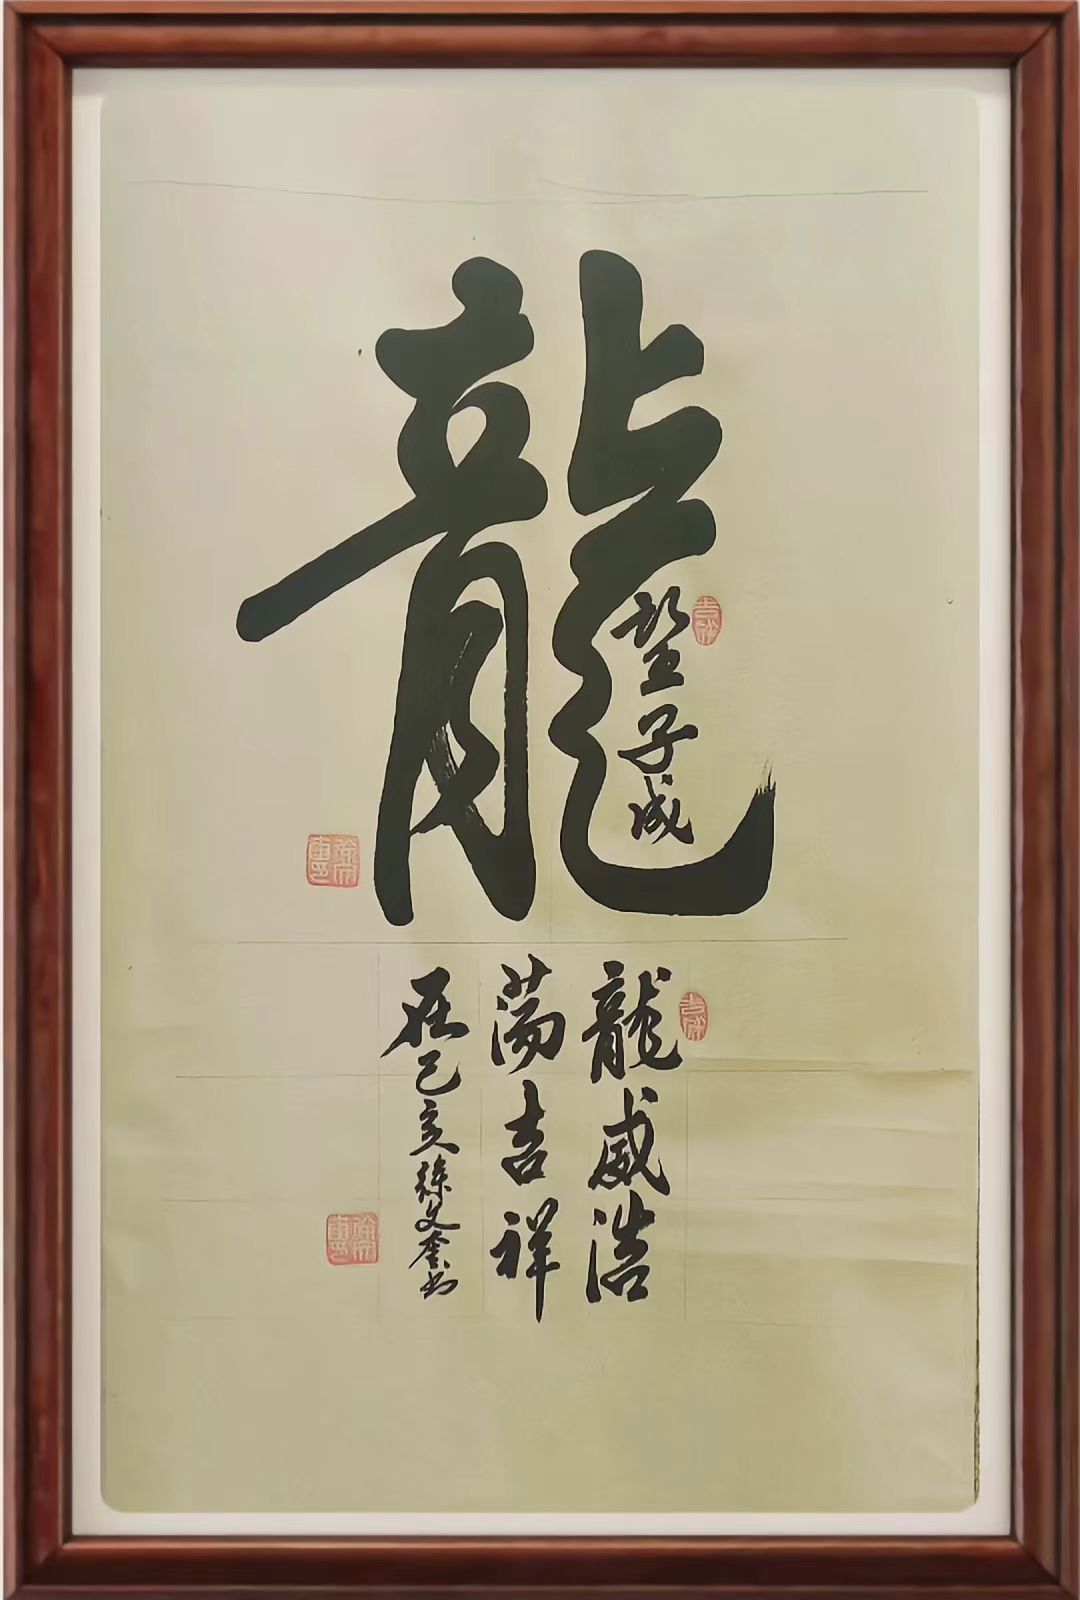 龍
望子成
龍威浩
蕩吉祥
在己亥徐文奎书